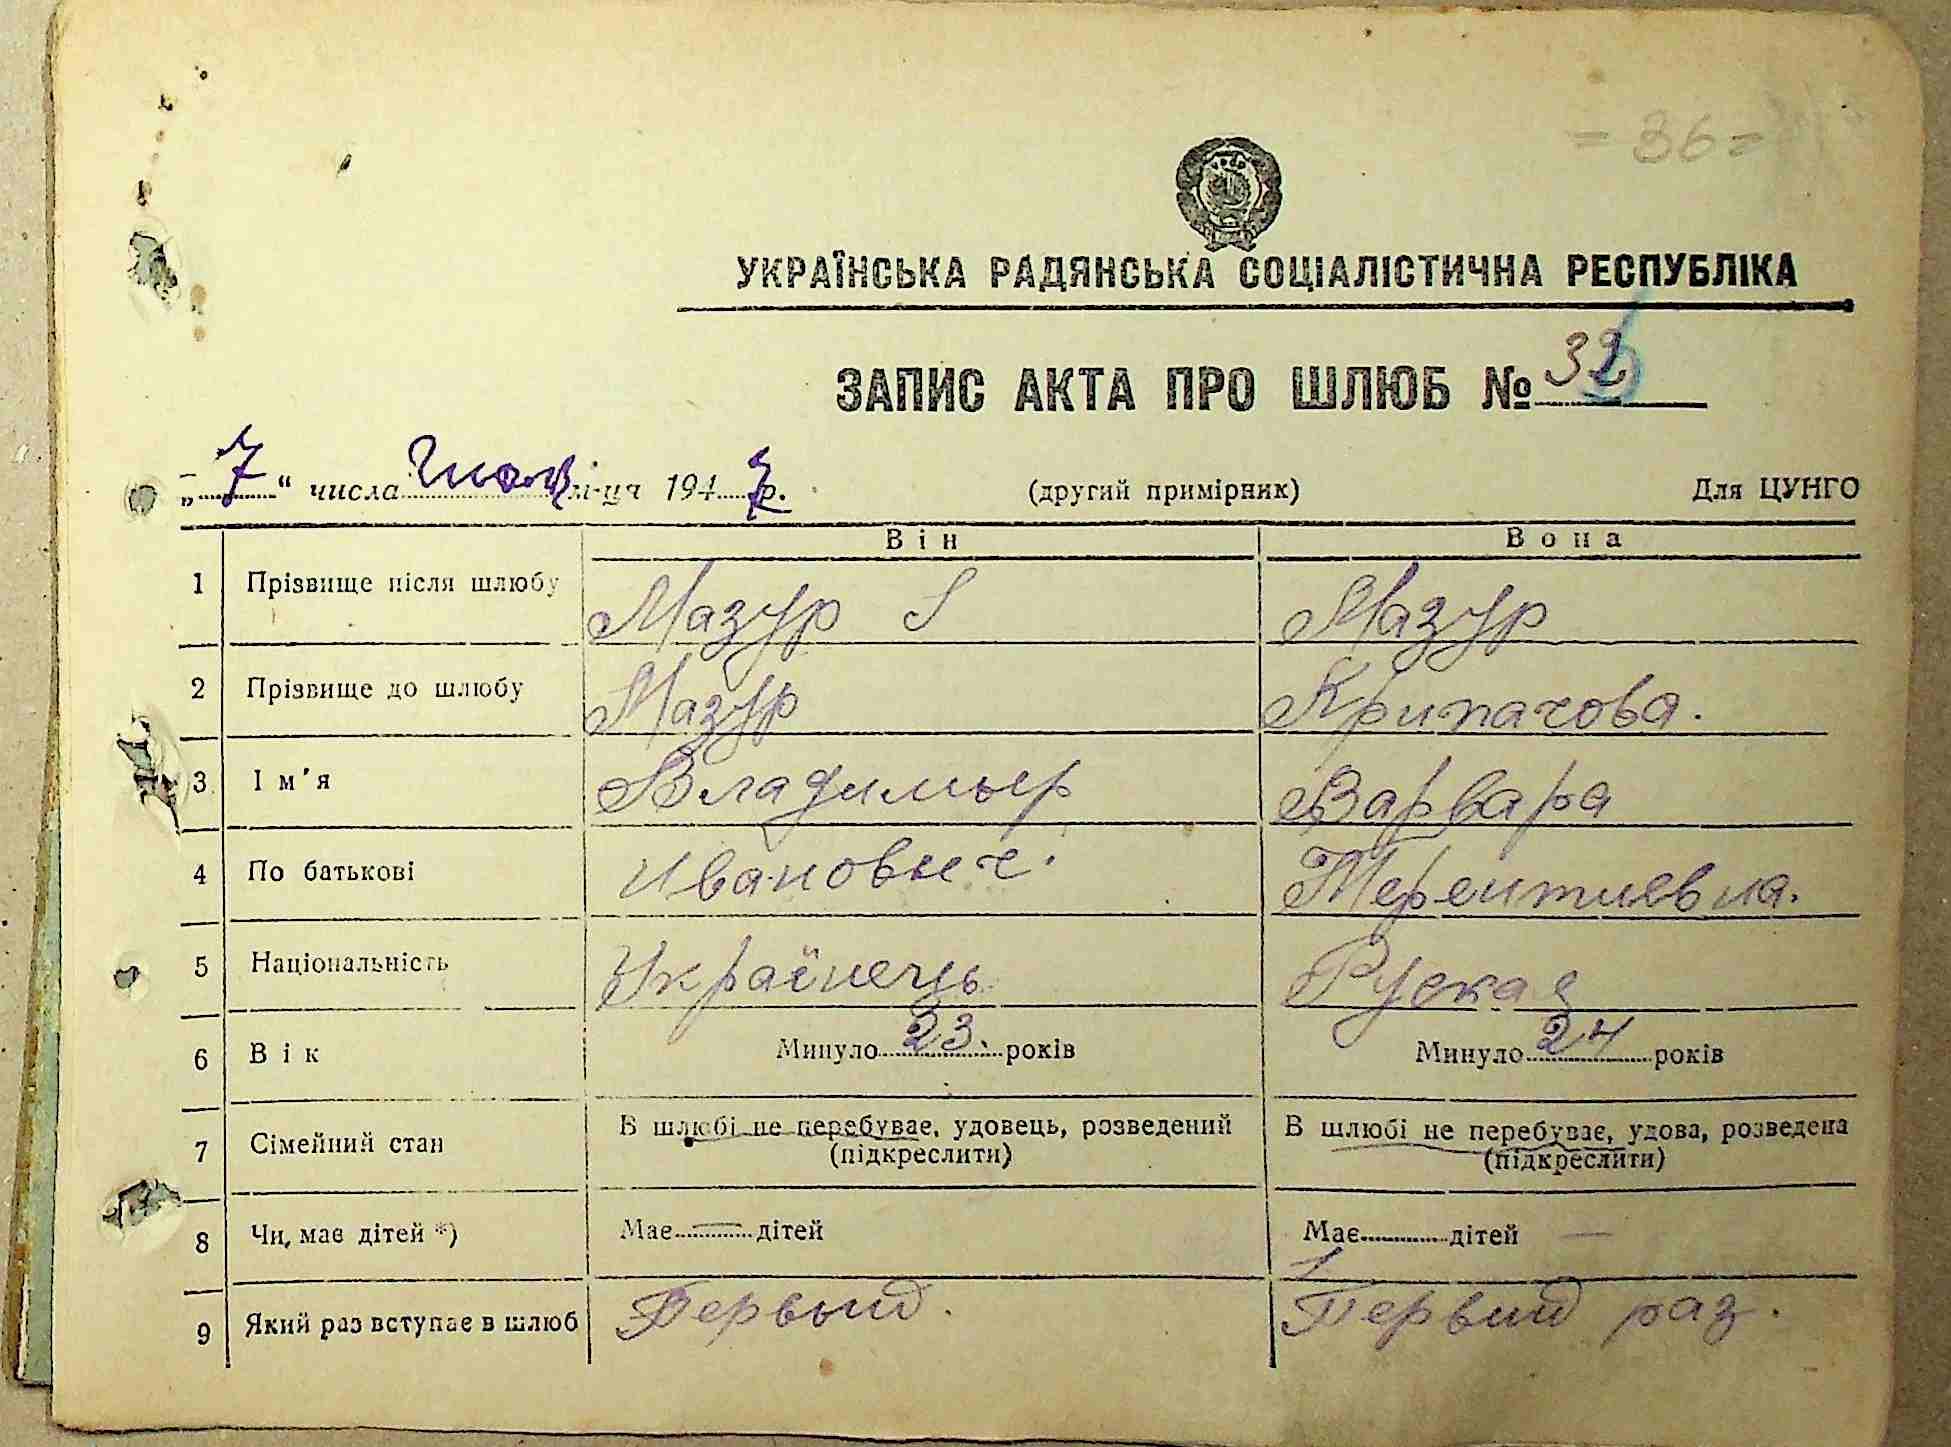 = 36 =
УКРАЇНСЬКА РАДЯНСЬКА СОЦІАЛІСТИЧНА РЕСПУБЛІКА
ЗАПИС АКТА ПРО ШЛЮБ № 32
„7“ числа м-ця 1947 р. (другий примірник) Для ЦУНГО
Він Вона
1 Прізвище після шлюбу Мазур Мазур
2 Прізвище до шлюбу Мазур Крипачова.
3 Ім'я Владимыр Варвара
4 По батькові Ивановыч. Терентиевна.
5 Національність Українець Руская
6 Вік Минуло 23. років Минуло 24 років
7 Сімейний стан В шлюбі не перебуває, удовець, розведений В шлюбі не перебуває, удова, розведена
(підкреслити) (підкреслити)
8 Чи має дітей *) Має — дітей Має дітей —
9 Який раз вступає в шлюб Первый. Первий раз.